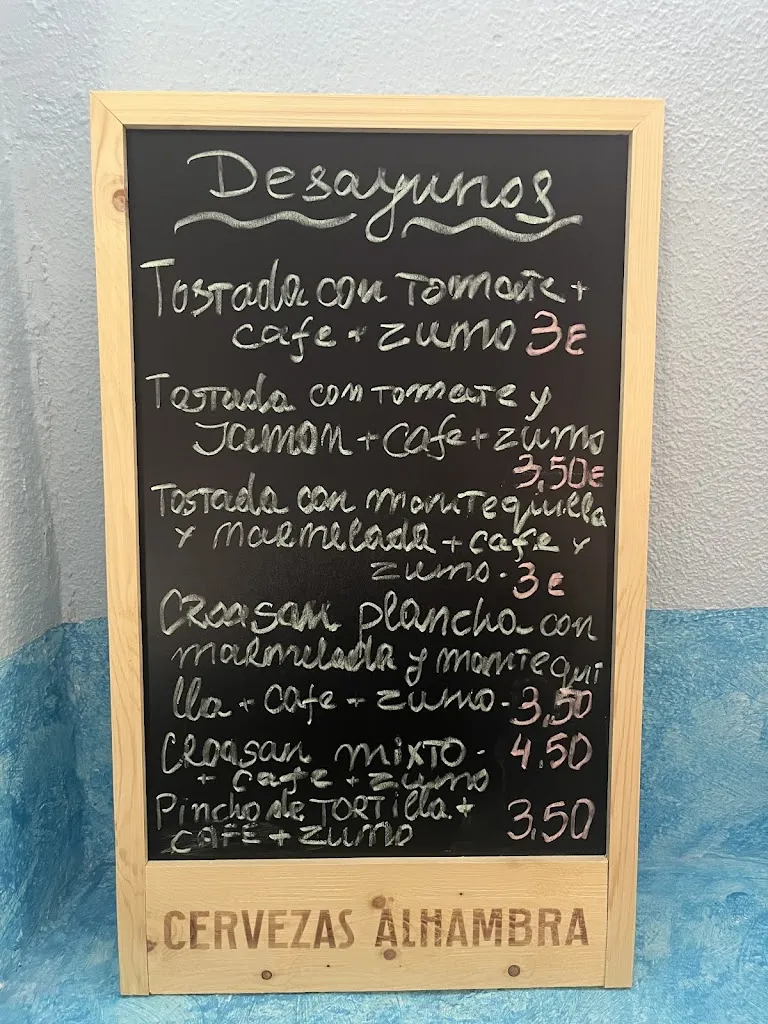 Desayunos
Tostada con Tomate +
cafe + zumo 3€
Tostada con tomate y
JAMON + cafe + zumo
3,50€
Tostada con mantequilla
y marmelada + cafe y
zumo. 3€
Croasan plancha con
marmelada y mantequi
lla + cafe + zumo - 3,50
Croasan mixto - 4.50
+ cafe + zumo
Pincho de TORTilla +
CAFE + ZUMO 3,50
CERVEZAS ALHAMBRA